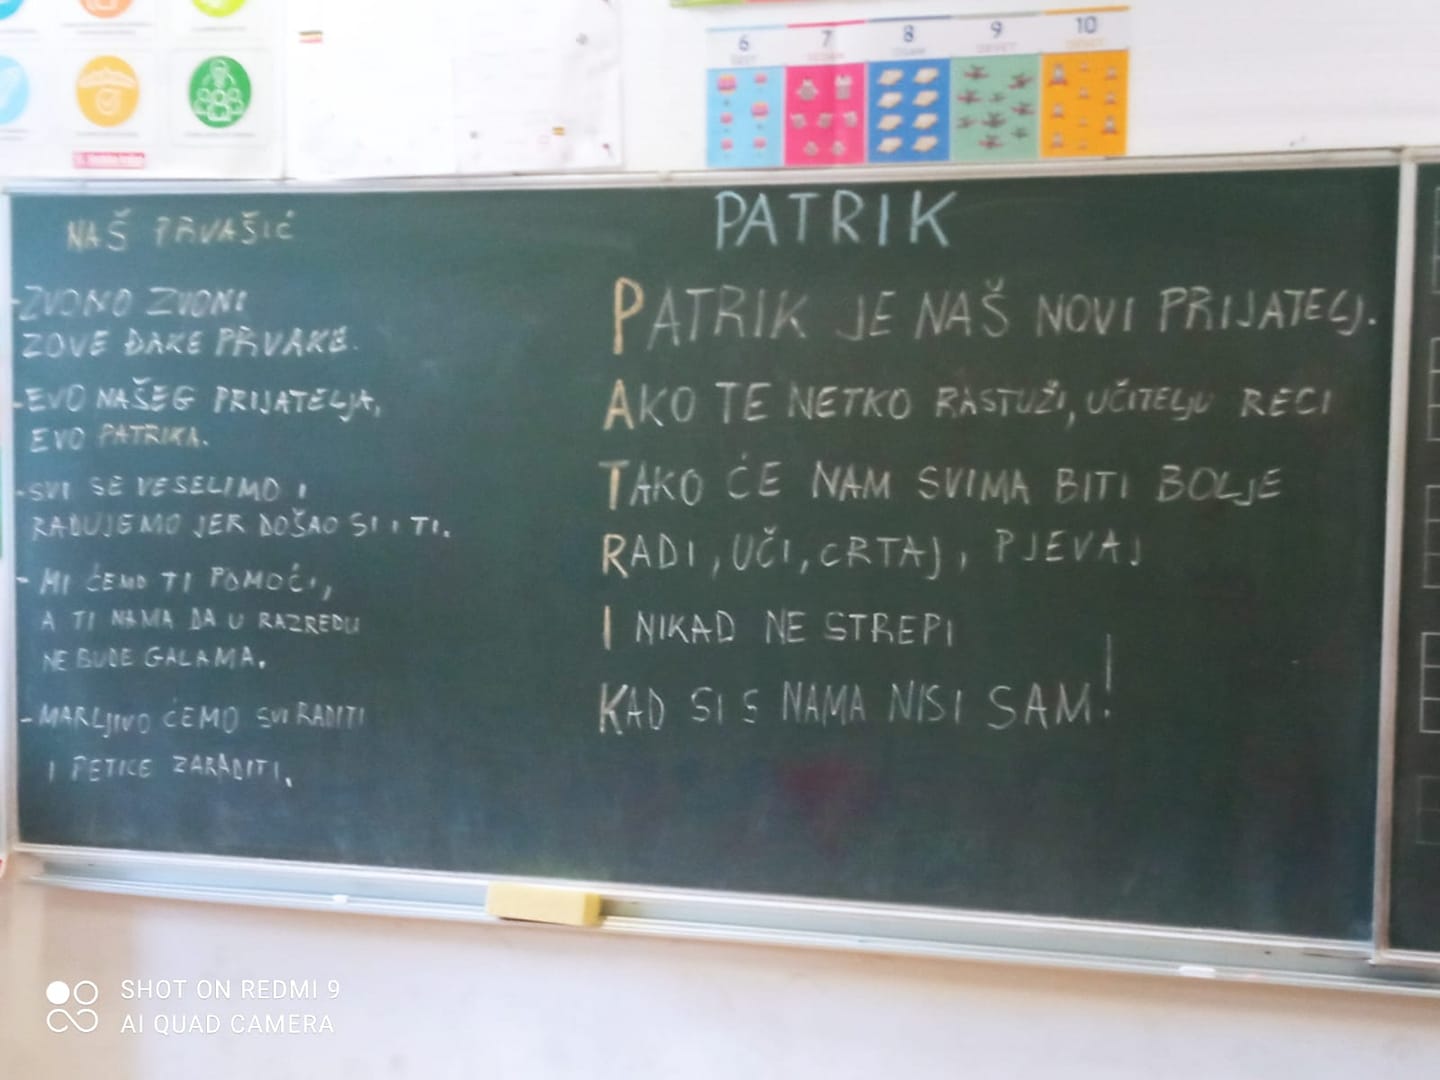 6 7 8 9 10
NAŠ PRVAŠIĆ
- ZVONO ZVONI
ZOVE ĐAKE PRVAKE.
- EVO NAŠEG PRIJATELJA,
EVO PATRIKA.
- SVI SE VESELIMO I
RADUJEMO JER DOŠAO SI I TI.
- MI ĆEMO TI POMOĆI,
A TI NAMA DA U RAZREDU
NE BUDE GALAMA.
- MARLJIVO ĆEMO SVI RADITI
I PETICE ZARADITI.
PATRIK
PATRIK JE NAŠ NOVI PRIJATELJ.
AKO TE NETKO RASTUŽI, UČITELJU RECI
TAKO ĆE NAM SVIMA BITI BOLJE
RADI, UČI, CRTAJ, PJEVAJ
I NIKAD NE STREPI
KAD SI S NAMA NISI SAM!
SHOT ON REDMI 9
AI QUAD CAMERA